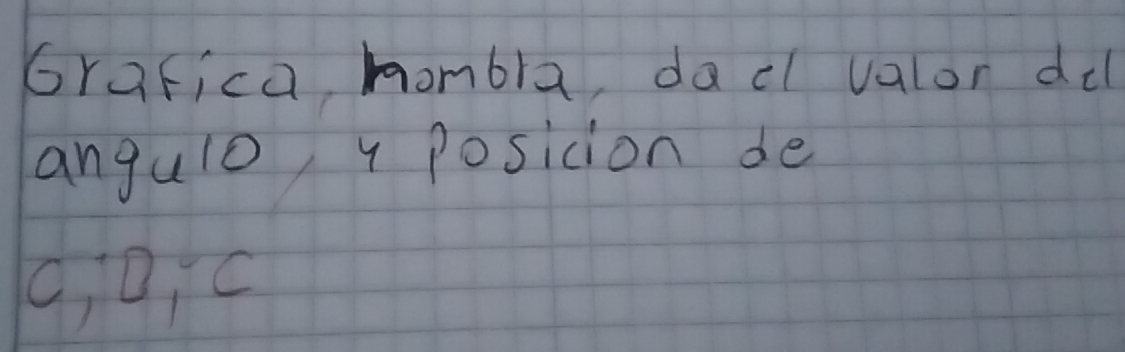 Grafica, nombra, da el valor del
angulo, y posicion de
C, D, C